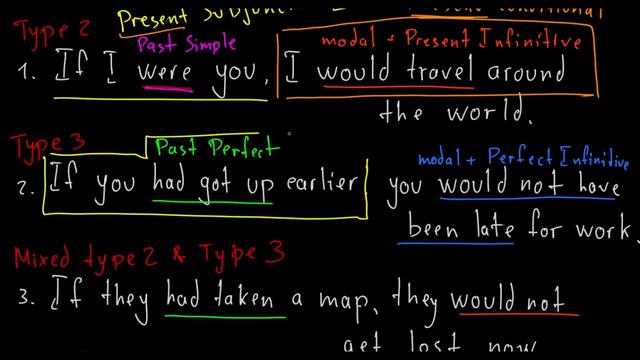 Present Subjunc
Present Conditional
Type 2
Past Simple
modal + Present Infinitive
1. If I were you, I would travel around
the world.
Type 3
Past Perfect
modal + Perfect Infinitive
2. If you had got up earlier you would not have
been late for work.
Mixed type 2 & Type 3
3. If they had taken a map, they would not
get lost now